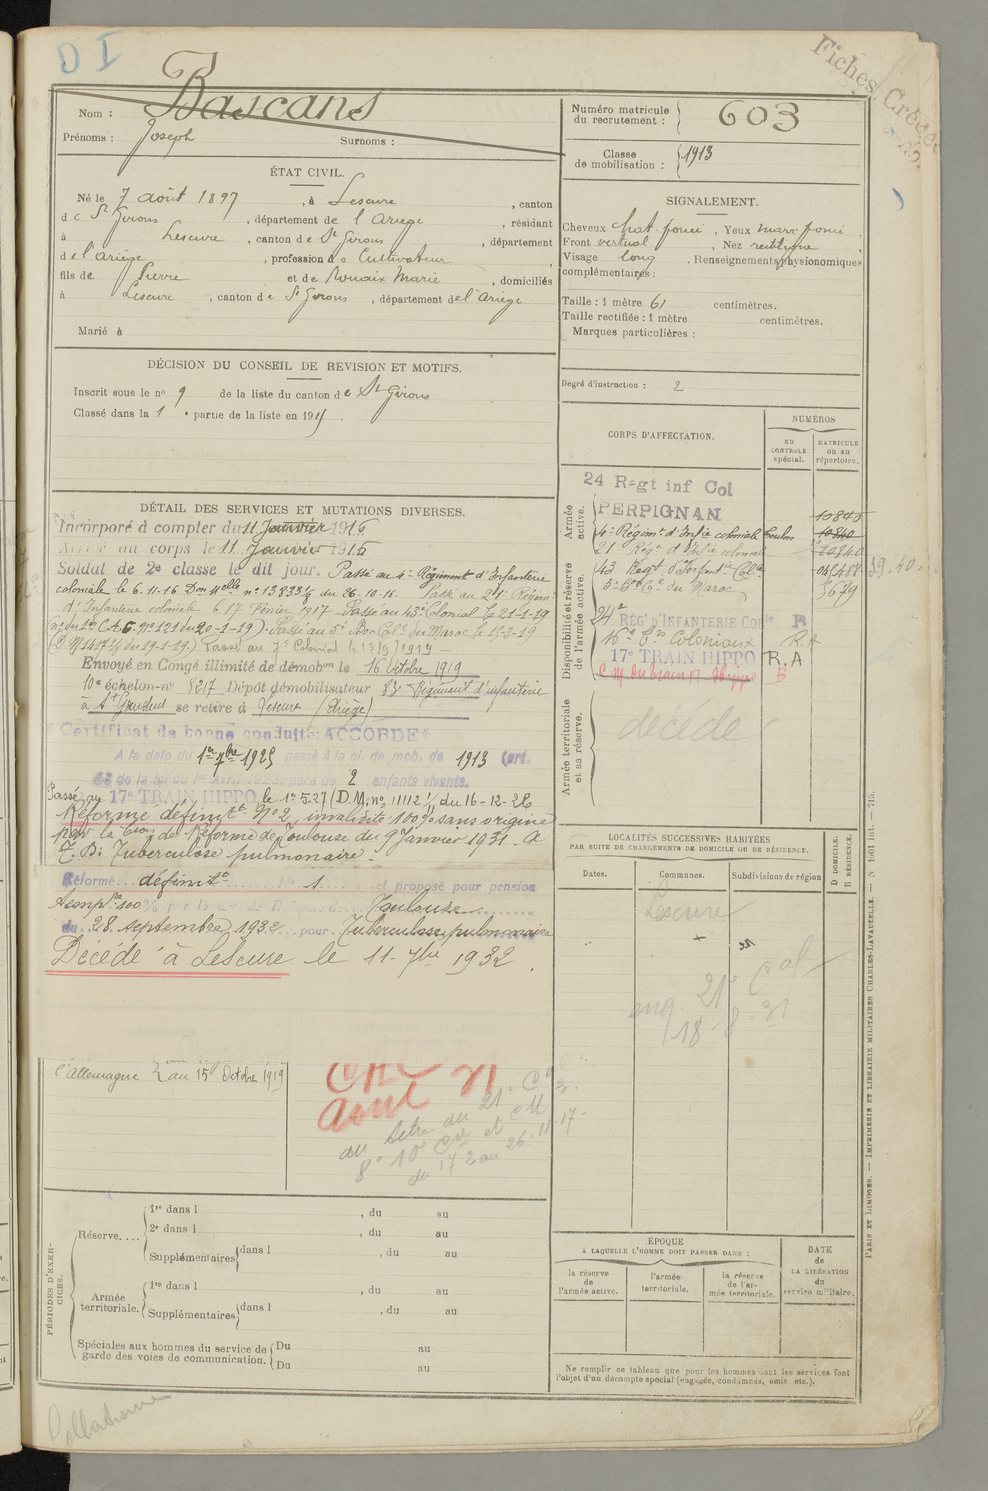 D I
Fiches Créées
Nom : Bascans
Prénoms : Joseph Surnoms :
Numéro matricule du recrutement : 603
Classe de mobilisation : 1913
ÉTAT CIVIL.
Né le 7 août 1897, à Lescure, canton
de St Girons, département de l'Ariège, résidant
à Lescure, canton de St Girons, département
de l'Ariège, profession de Cultivateur
fils de Pierre et de Rouaix Marie, domiciliés
à Lescure, canton de St Girons, département de l'Ariège
Marié à
SIGNALEMENT.
Cheveux chat. foncé, Yeux marr foncé,
Front vertical, Nez rectiligne,
Visage long, Renseignements physionomiques
complémentaires :
Taille : 1 mètre 61 centimètres.
Taille rectifiée : 1 mètre centimètres.
Marques particulières :
Degré d'instruction : 2
DÉCISION DU CONSEIL DE REVISION ET MOTIFS.
Inscrit sous le no 9 de la liste du canton de St Girons
Classé dans la 1e partie de la liste en 191
DÉTAIL DES SERVICES ET MUTATIONS DIVERSES.
Incorporé à compter du 11 Janvier 1916
Arrivé au corps le 11 Janvier 1916
Soldat de 2e classe le dit jour. Passé au 4e Régiment d'Infanterie
coloniale le 6.11.16 Don Mlle no 13833 1/8 du 26.10.16. Passé au 21e Régim
d'Infanterie coloniale le 17 Février 1917 - Passé au 43e Colonial le 21-1-19
(No 121 du 20-1-19). Passé au 5e Bon Colal du Maroc le 15-3-19
(D.M 1417 du 19-1-19.) Passé au 7e Colonial le 13/9/1919 -
Envoyé en Congé illimité de démobon le 16 Octobre 1919
10e échelon-no 8217 Dépôt démobilisateur 83e Régiment d'infanterie
à St Gaudens se retire à Lescure (Ariège)
Certificat de bonne conduite : ACCORDÉ
A la date du 1er 7bre 1925 passé à la cl. de mob. de 1913 (art.
de la loi du 1er Avril 1923) père de 2 enfants vivants.
Passé au 17e TRAIN HIPPO le 1er 5-27 (D.M. no 11112 1/1 du 16-12-26
Réformé définitt No 2, invalidité 100% sans origine
par la Con de Réforme de Toulouse du 9 Janvier 1931. A
T. B: Tuberculose pulmonaire.
Réformé définitt No 1 et proposé pour pension
temp re 100% par la Con de Réforme de Toulouse
du 28 septembre 1932 pour Tuberculose pulmonaire
Décédé à Lescure le 11-7bre 1932.
CORPS D'AFFECTATION.
NUMÉROS
AU CONTROLE spécial.
MATRICULE ou au répertoire.
Armée active.
24 Regt inf Col
PERPIGNAN 10840
4e Régimt d'Infie coloniale Toulon 10840
21 Régt d'Infie coloniale 10840
Disponibilité et réserve de l'armée active.
43 Regt d'Infant. Colle
5e Bon Cal du Maroc 3679
24e RÉGt D'INFANTERIE Cole R
16e Con Coloniaux R.A
17e TRAIN HIPPO R.A
Armée territoriale et sa réserve.
décédé
39.40
LOCALITÉS SUCCESSIVES HABITÉES
PAR SUITE DE CHANGEMENTS DE DOMICILE OU DE RÉSIDENCE.
Dates. Communes. Subdivisions de région
D DOMICILE.
R RÉSIDENCE.
Lescure
21e Col
18-8-31
l'Allemagne au 15 Octobre 1919
Août 31
du 17 2 au 26-11-17
PÉRIODES D'EXERCICES.
Réserve....
1re dans l , du au
2e dans l , du au
Supplémentaires dans l , du au
Armée territoriale.
1re dans l , du au
Supplémentaires dans l , du au
Spéciales aux hommes du service de garde des voies de communication.
Du au
Du au
ÉPOQUE
A LAQUELLE L'HOMME DOIT PASSER DANS :
la réserve de l'armée active.
l'armée territoriale.
la réserve de l'armée territoriale.
DATE de LA LIBÉRATION du service militaire.
Ne remplir ce tableau que pour les hommes dont les services font
l'objet d'un décompte spécial (engagés, condamnés, omis, etc.).
PARIS ET LIMOGES. — IMPRIMERIE ET LIBRAIRIE MILITAIRES CHARLES-LAVAUZELLE.
Collationné